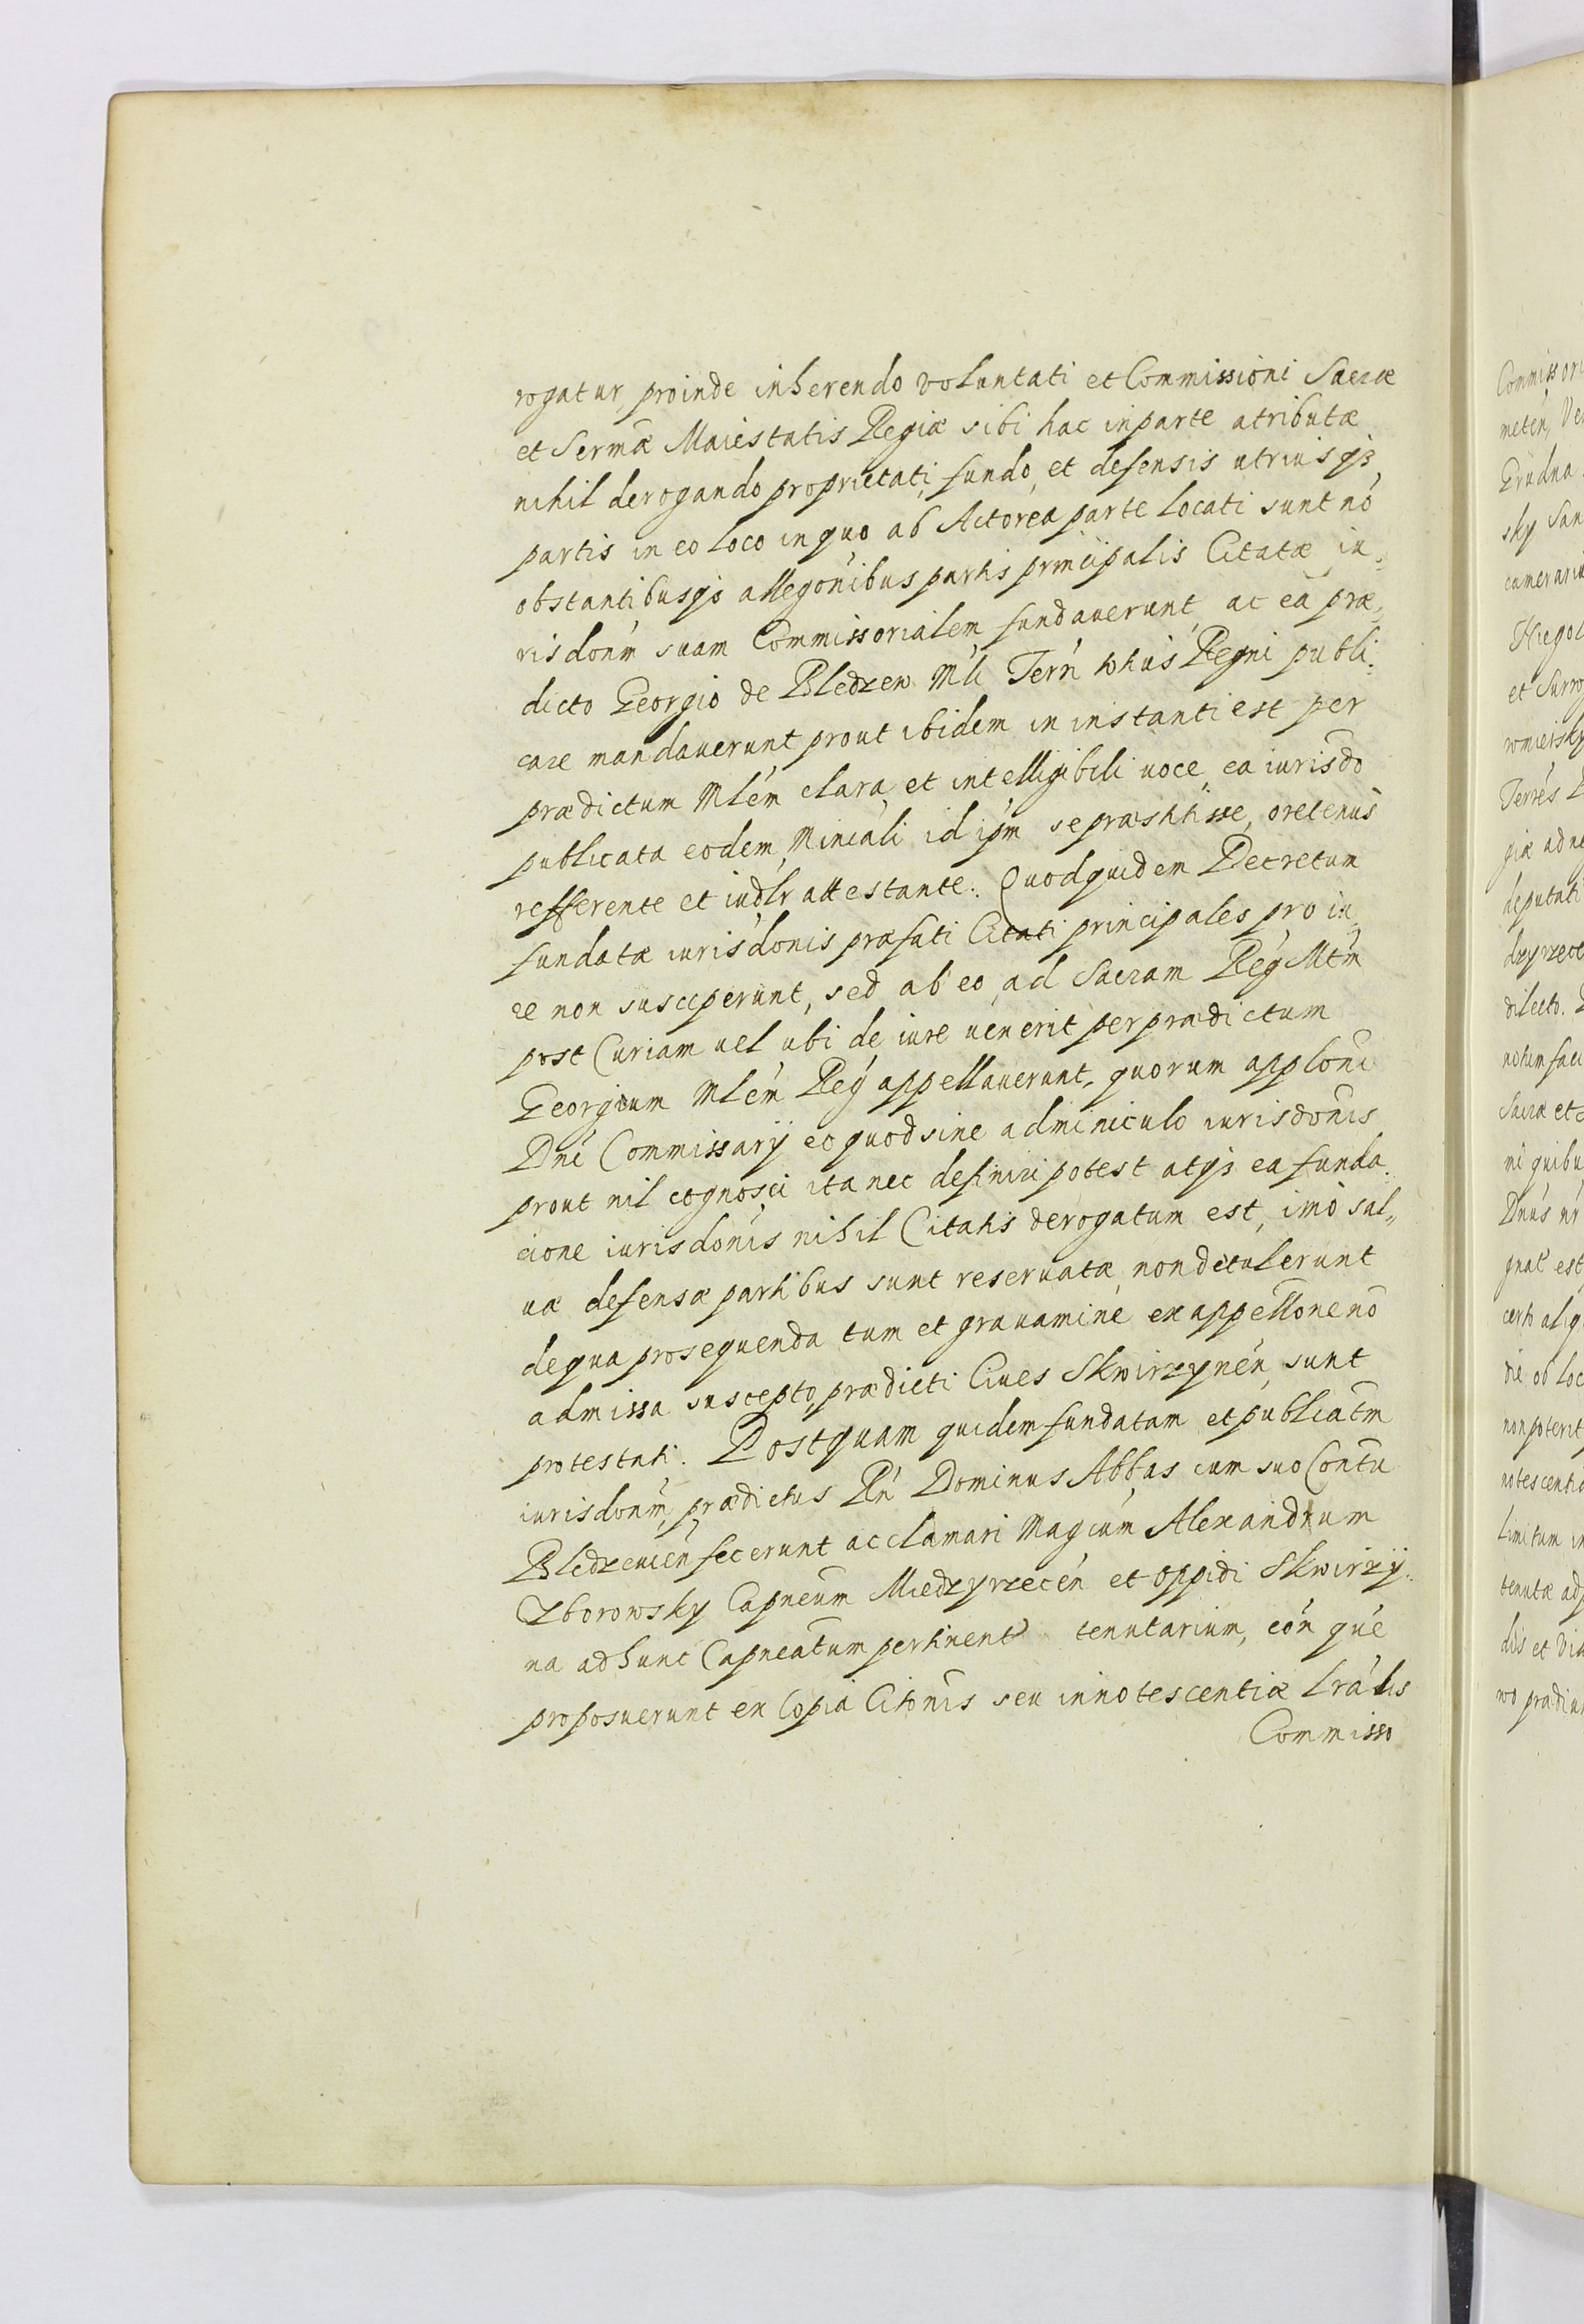 rogatur proinde inherendo voluntati et Commissioni Sacræ
et Sermæ Maiestatis Regiæ sibi hac inparte atributæ
nihil derogando proprietati, fundo, et defensis utriusqȝ
partis in eo loco in quo ab Actorea parte locati sunt nō
obstantibusqȝ allegōnibus partis principalis Citatæ iu„
risdōnm suam Commissorialem fundauerunt, ac eā præ„
dicto Georgio de Bledzew Mli Terrn whūs Regni publi:
care mandauerunt prout ibidem in instanti est per
prædictum Mlēm clara, et intelligibili uoce, ea iurisdō
publicata eodem Minēali id ipm se præstitisse, oretenus
refferente et iudlr attestante. Quodquidem Decretum
fundatæ iurisdōnis præfati Citati principales pro iu„
re non susceperunt, sed ab eo, ad Sacram Reg Mtm
post Curiam uel ubi de iure uenerit per prædictum
Georgium Mlēm Reg appellauerunt, quorum applōni
Dni Commissarij eo quod sine adminiculo iurisdōnis
prout nil cognosci ita nec definiri potest atqȝ ea funda:
cione iurisdōnis nihil Citatis derogatum est, imò sal„
uæ defensæ partibus sunt reseruatæ, non detulerunt
de qua prosequenda tum et grauamine ex appellōne nō
admissa suscepto, prædicti Ciues Skwirzynēn, sunt
protestati. Postquam quidem fundatam et publicatm
iurisdōnm, prædictus Rn Dominus Abbas cum suo Conṽtu
Bledzeuiēn fecerunt acclamari Magcum Alexandrum
Zborowsky Capneūm Miedzyrzecēn et oppidi Skwirzÿ:
na ad hunc Capneātum pertinentˀ tenutarium, cōn quē
proposuerunt ex Copia Citōnis seu innotescentiæ Lrālis
Commisso

Commissori
meten, Ve
Grudna
sky San
camerariu
et Surrog
Terres
giæ ad ne
deputati
dilecto.
notum faci
Sacræ et
ni quibu
Dnus nr
gnat est
certo aliq
die ob loc
non poterit
notescentia
Limitum in
tenutæ adp
dlis et
wo prædiu